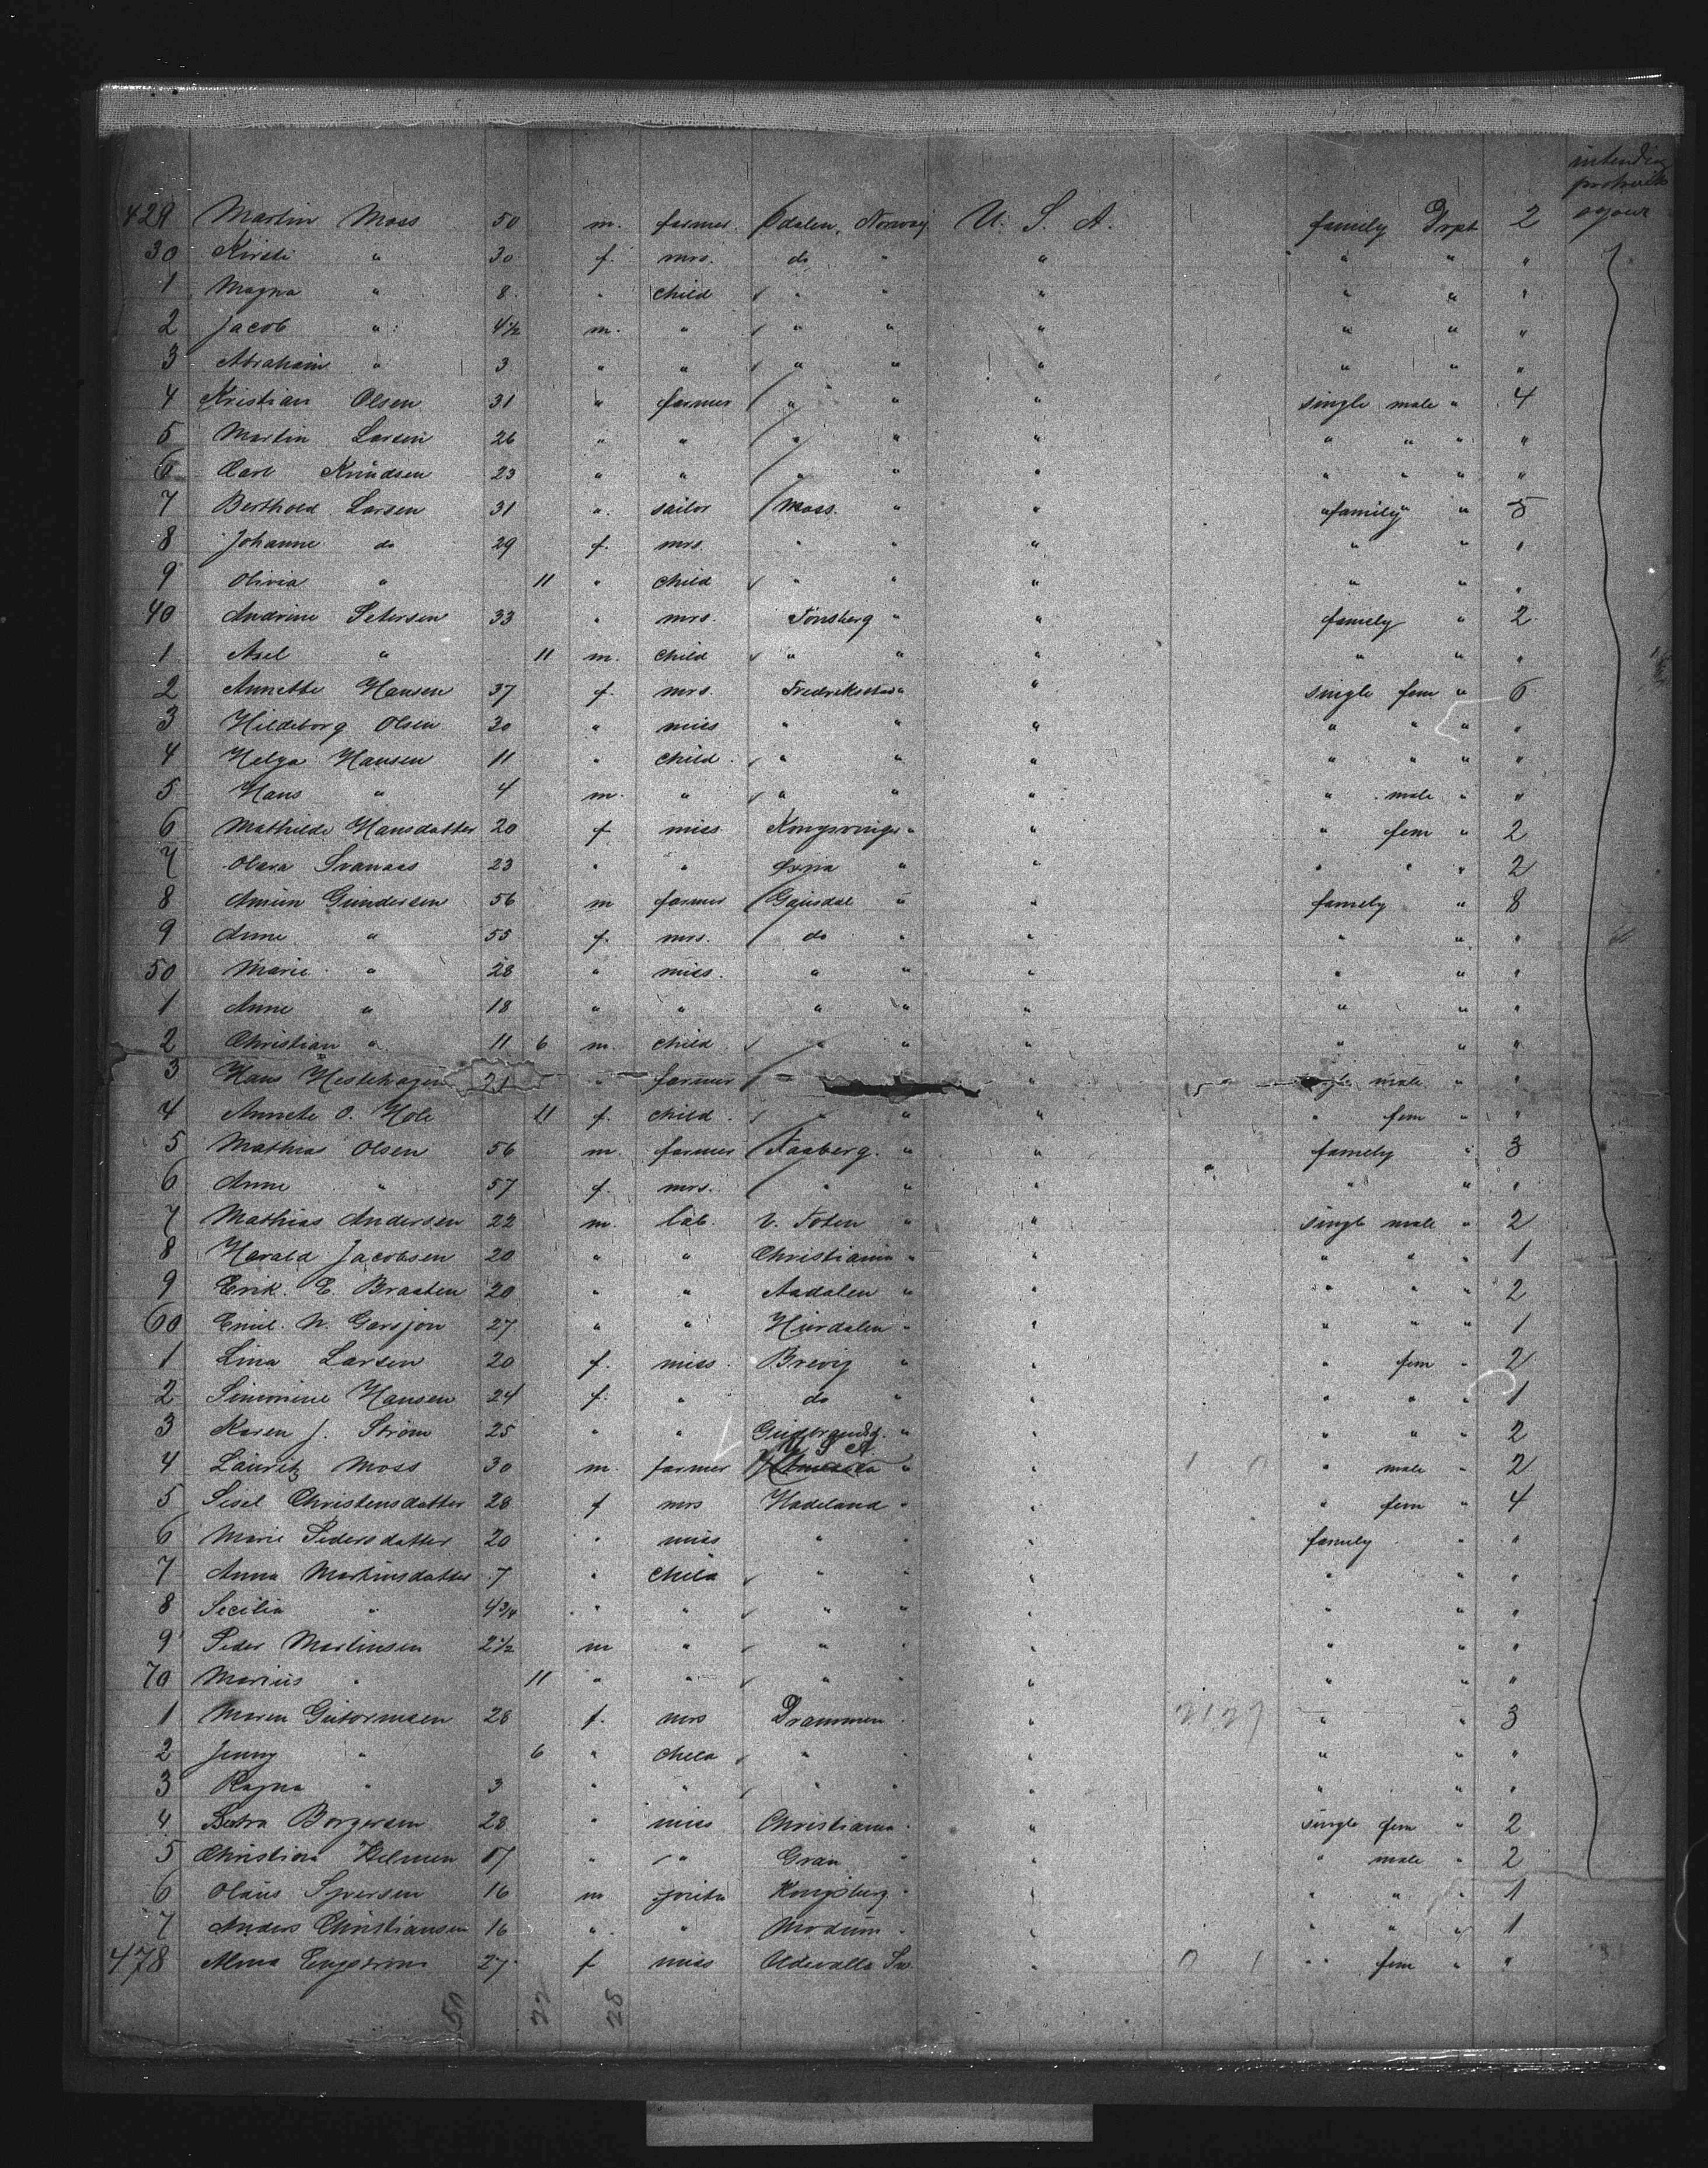 intending
protracted
sojour
429 Martin Moss 50 m. farmer Odalen, Norway U. S. A. family Drpt 2
30 Kirsti " 30 f. mrs. do " " " " "
1 Magna " 8 " child " " " " " "
2 Jacob " 4½ m. " " " " " " "
3 Abraham " 3 " " " " " " " "
4 Kristian Olsen 31 " farmer " " " single male " 4
5 Martin Larsen 26 " " " " " " " " "
6 Carl Knudsen 23 " " " " " " " " "
7 Berthold Larsen 31 " sailor Moss " " "family" " 5
8 Johanne do 29 f. mrs. " " " " " "
9 Olivia " 11 " child " " " " " "
40 Andrine Petersen 33 " mrs. Tönsberg " " family " 2
1 Axel " 11 m. child " " " " " "
2 Annette Hansen 37 f. mrs. Fredrikstad " " single fem " 6
3 Hildeborg Olsen 30 " miss " " " " " " "
4 Helga Hansen 11 " child " " " " " " "
5 Hans " 4 m. " " " " " male " "
6 Mathilde Hansdatter 20 f miss Kongsvinger " " " fem " 2
7 Svanaas 23 " " " " " " " 2
8 Gundersen 56 m farmer Gausdal " " family " 8
9 Anne " 55 f. mrs. do " " " " "
50 Marie " 28 " miss. " " " " " "
1 Anne " 18 " " " " " " " "
2 Christian " 11 6 m. child " " " " " "
3 Hans Hestehagen 21 " farmer " " single male " "
4 Annete O. Hole 11 f. child " " " " fem " "
5 Mathias Olsen 56 m. farmer Faaberg. " " family " 3
6 Anne " 57 f. mrs. " " " " " "
7 Mathias Andersen 22 m. lab. V. Toten " " single male " 2
8 Harald Jacobsen 20 " " Christiania " " " " " 1
9 Erik. E. Braaten 20 " " Aadalen " " " " " 2
60 Emil. N. Garsjon 27 " " Hurdalen " " " " " 1
1 Lina Larsen 20 f. miss. Brevig " " " fem " 2
2 Simonine Hansen 24 f. " do " " " " " 1
3 Karen J. Strom 25 " " Gudbrandsd. " " " " " 2
4 Lauritz Moss 30 m. farmer U S A. " " " male " 2
5 Sisel Christensdatter 28 f mrs Hadeland " " " fem " 4
6 Marie Pedersdatter 20 " miss " " " family " "
7 Anna Martinsdatter 7 " child " " " " " "
8 Secilia " 4¾ " " " " " " " "
9 Peder Martinsen 2½ m " " " " " " "
70 Marius " 11 " " " " " " " "
1 Maren Gutormsen 28 f. mrs Drammen " " " " 3
2 Jenny " 6 " child " " " " " "
3 Ragna " 3 " " " " " " " "
4 Borgersen 28 " miss Christiania " " single fem " 2
5 Christian 17 " " Gran " " " male " 2
6 Olaus Syversen 16 m Kongsberg " " " " " 1
7 Anders Christiansen 16 " " Modum " " " " " 1
478 Alma Engstrom 27 f miss Udevalla Sw. " " fem " "
50 22 28